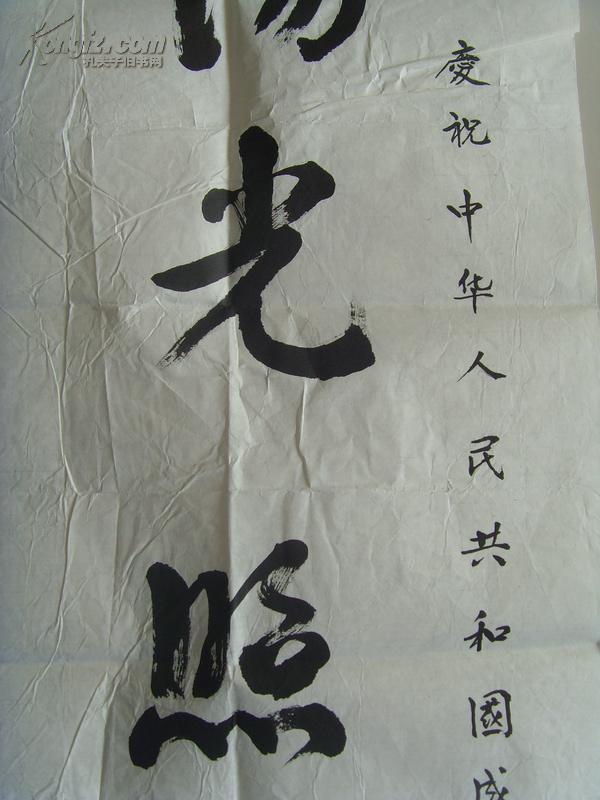 慶祝中华人民共和國成
光照
Kongfz.com
孔夫子旧书网